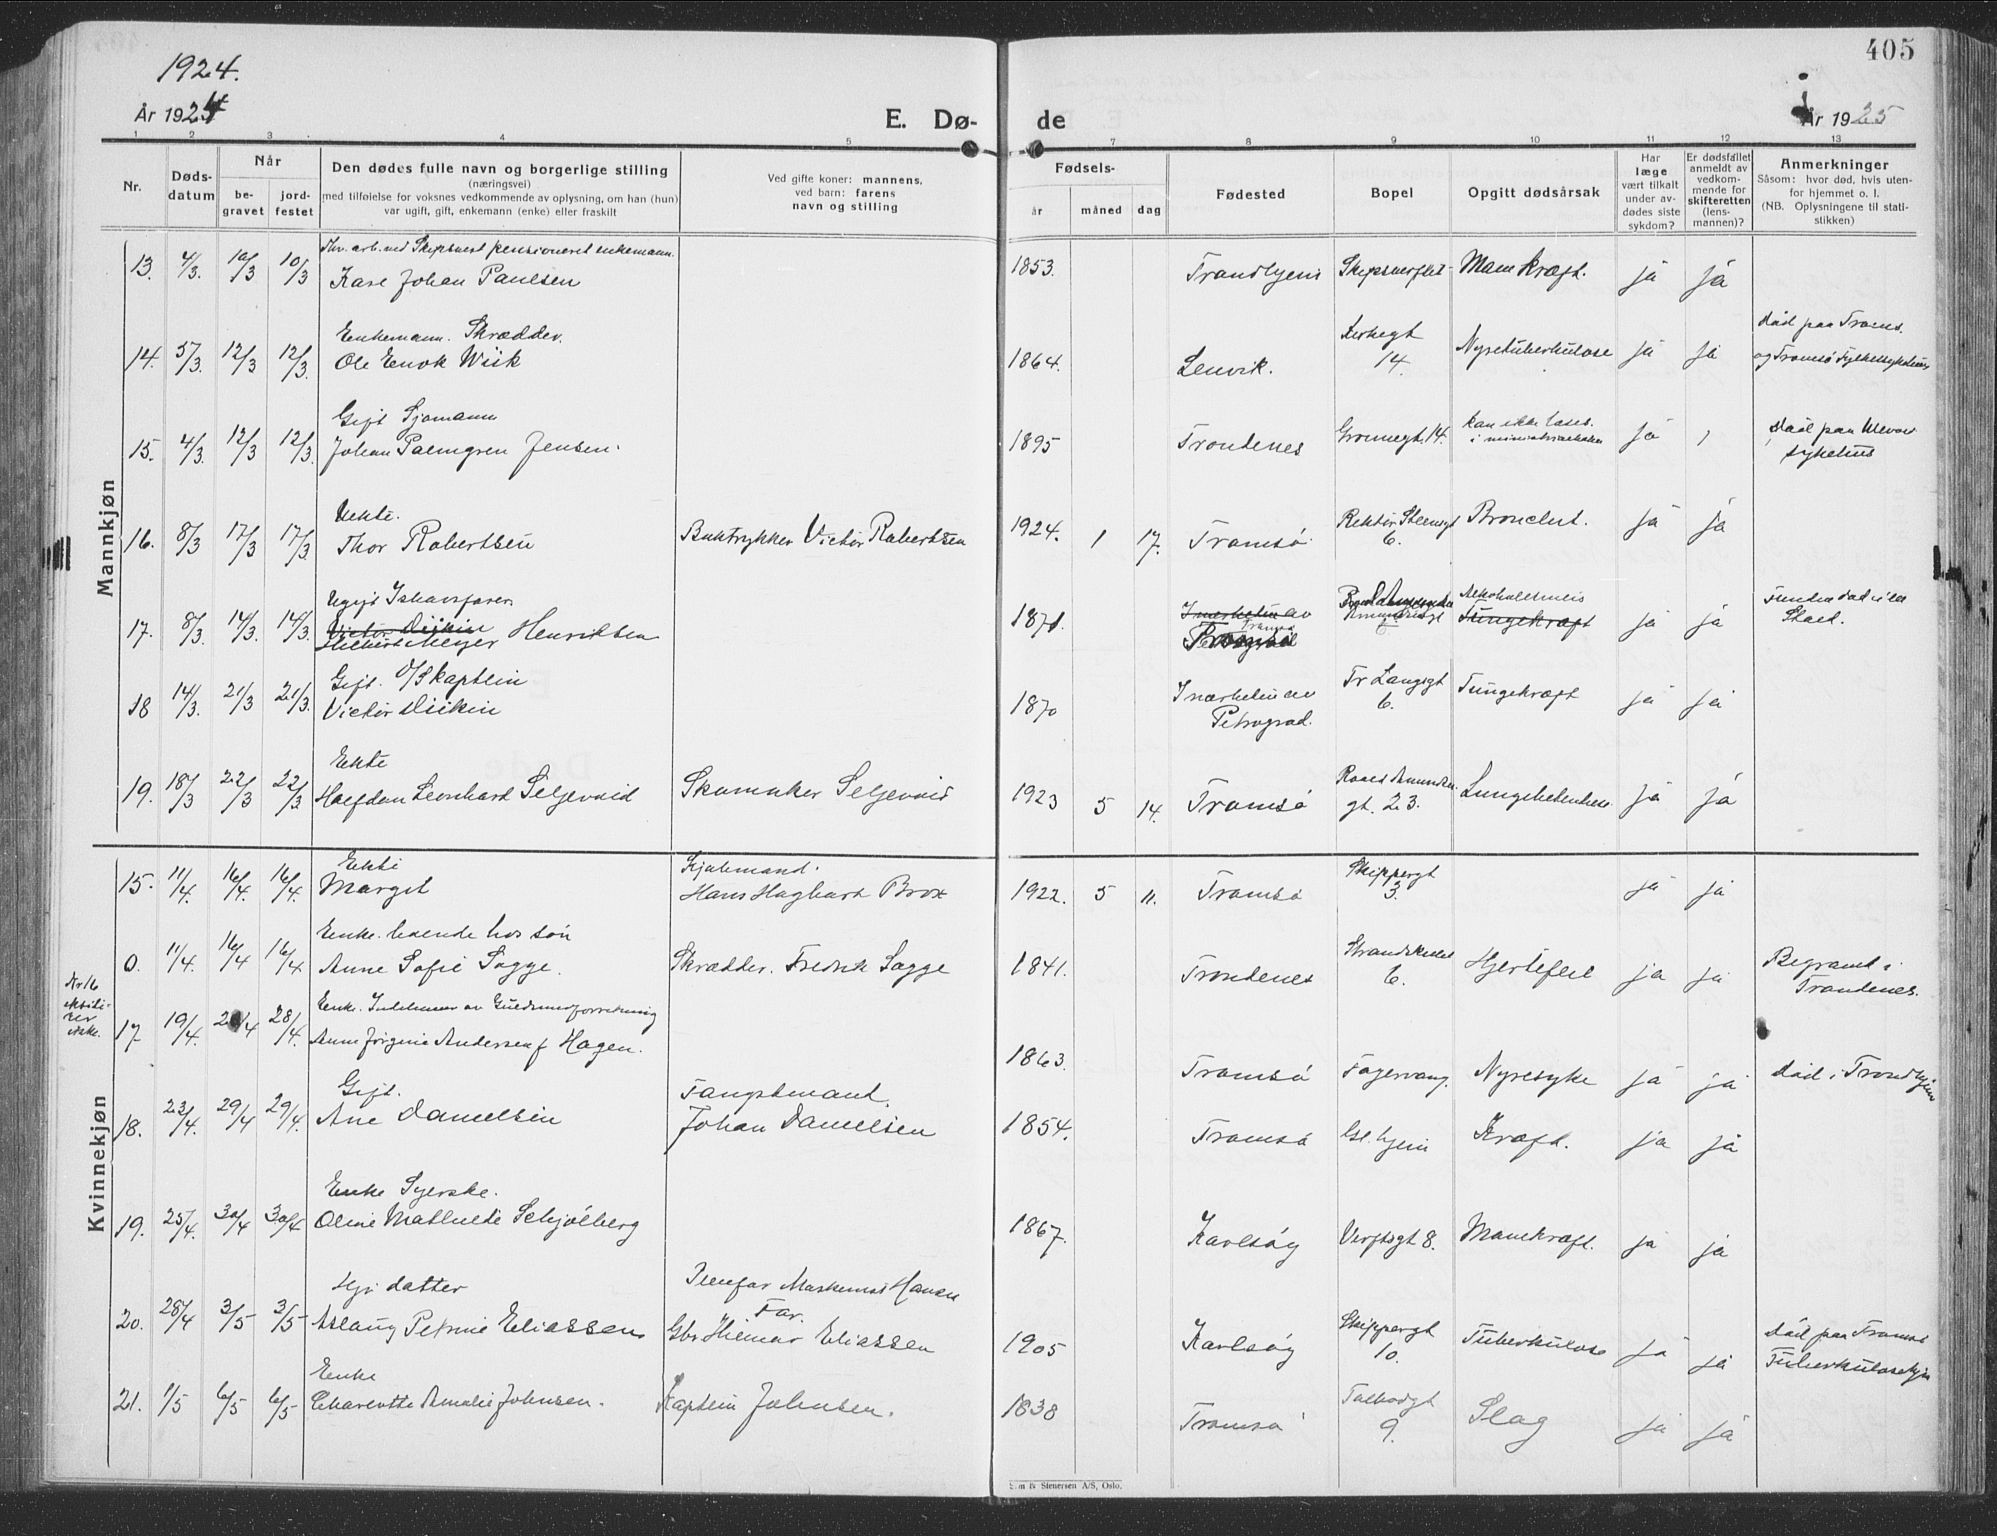 1924.
405
År 1924
E. Dø-
de
År 1925
1 2 3 4 5 7 8 9 10 11 12 13
Nr.
Døds-
datum
Når
be-
gravet
jord-
festet
Den dødes fulle navn og borgerlige stilling
(næringsvei)
med tilføielse for voksnes vedkommende av oplysning, om han (hun)
var ugift, gift, enkemann (enke) eller fraskilt
Ved gifte koner: mannens,
ved barn: farens
navn og stilling
Fødsels-
år
måned
dag
Fødested
Bopel
Opgitt dødsårsak
Har
læge
vært tilkalt
under av-
dødes siste
sykdom?
Er dødsfallet
anmeldt av
vedkom-
mende for
skifteretten
(lens-
mannen)?
Anmerkninger
Såsom: hvor død, hvis uten-
for hjemmet o. l.
(NB. Oplysningene til stati-
stikken)
Mannkjøn
arb. ved Skipsverft pensioneret enkemann.
13. 4/3. 10/3 10/3 Kare Johan Paulsen 1853. Trondhjem Skipsverftet Mavekræft. ja ja
Enkemann. Skrædder.
14. 5/3. 12/3 12/3. Ole Enok Wiik 1864. Lenvik. Kirkegt 14. Nyretuberkulose ja ja
Død paa Troms
og Tromsø Fylkessykehus
Gift Sjømann
15. 4/3. 12/3 12/3. Johan Palmgren Jensen. 1895 Trondenes Grønnegt. 14. kan ikke læses. ja
Død paa
sykehus
Ekte.
16. 8/3 17/3 17/3 Thor Robertsen Boktrykker Victor Robertsen 1924. 1 17. Tromsø. Rektor Steensgt 6. Bronchit. ja ja
Ugift Ishavsfarer
17. 8/3. 14/3. 14/3. Victor Diikin Meyer Henriksen 1871. I nærheten av Tromsø Alkoholisme Lungekræft ja ja
Funden død i en
Stald.
Gift. Skaptein
18 14/3. 21/3 21/3. Victor Diikin 1870 I nærheten av Petrograd. Fr Langesgt 6. Lungekræft ja ja
Ekte
19. 18/3 22/3 22/3 Halfdan Leonhard Seljevoid Skomaker Seljevoid 1923 5 14. Tromsø Roald Amundsens gt. 23. Lungebetendelse ja ja
Kvinnekjøn
Ekte
15. 11/4. 16/4. 16/4. Margit
Hans Hagbart Brox 1922. 5 11. Tromsø Skippergt 3. ja ja
Enke. boende hos søn
0. 11/4. 16/4 16/4 Anne Sofie Sagge. Skrædder. Fredrik Sagge 1841. Trondenes Strandskillet 6. Hjertefeil ja ja
Begravet i
Trondenes.
Nr 16
eksiste-
rer
ikke.
Enke. Indehaver av Guldsmedforretning
17 19/4. 28/4 28/4. Anne Jørgine Andersen f Hagen. 1863. Tromsø Fagervang. Nyresyke ja ja død i Trondhjem
Gift.
18. 23/4. 29/4 29/4. Ane Danielsen Fangstmand. Johan Danielsen 1854. Tromsø Kræft. ja ja
Enke Syerske.
19. 25/4. 30/4 30/4 Oline Mathilde Schjølberg 1867. Karlsøy Verftsgt 8. Mavekræft. ja ja
Hj. datter
20. 28/4 3/5 3/5 Aslaug Petrine Eliassen
Far.
Hilmar Eliassen 1905 Karlsøy Skippergt 10. Tuberkulose ja ja
Død paa Tromsø
Tuberkulosehjem
Enke
21. 1/5 6/5 6/5 Charlotte Amalie Johnsen. Kaptein Johnsen. 1838 Tromsø Tolbodgt 9. Slag ja ja
Sem & Stenersen A/S, Oslo.